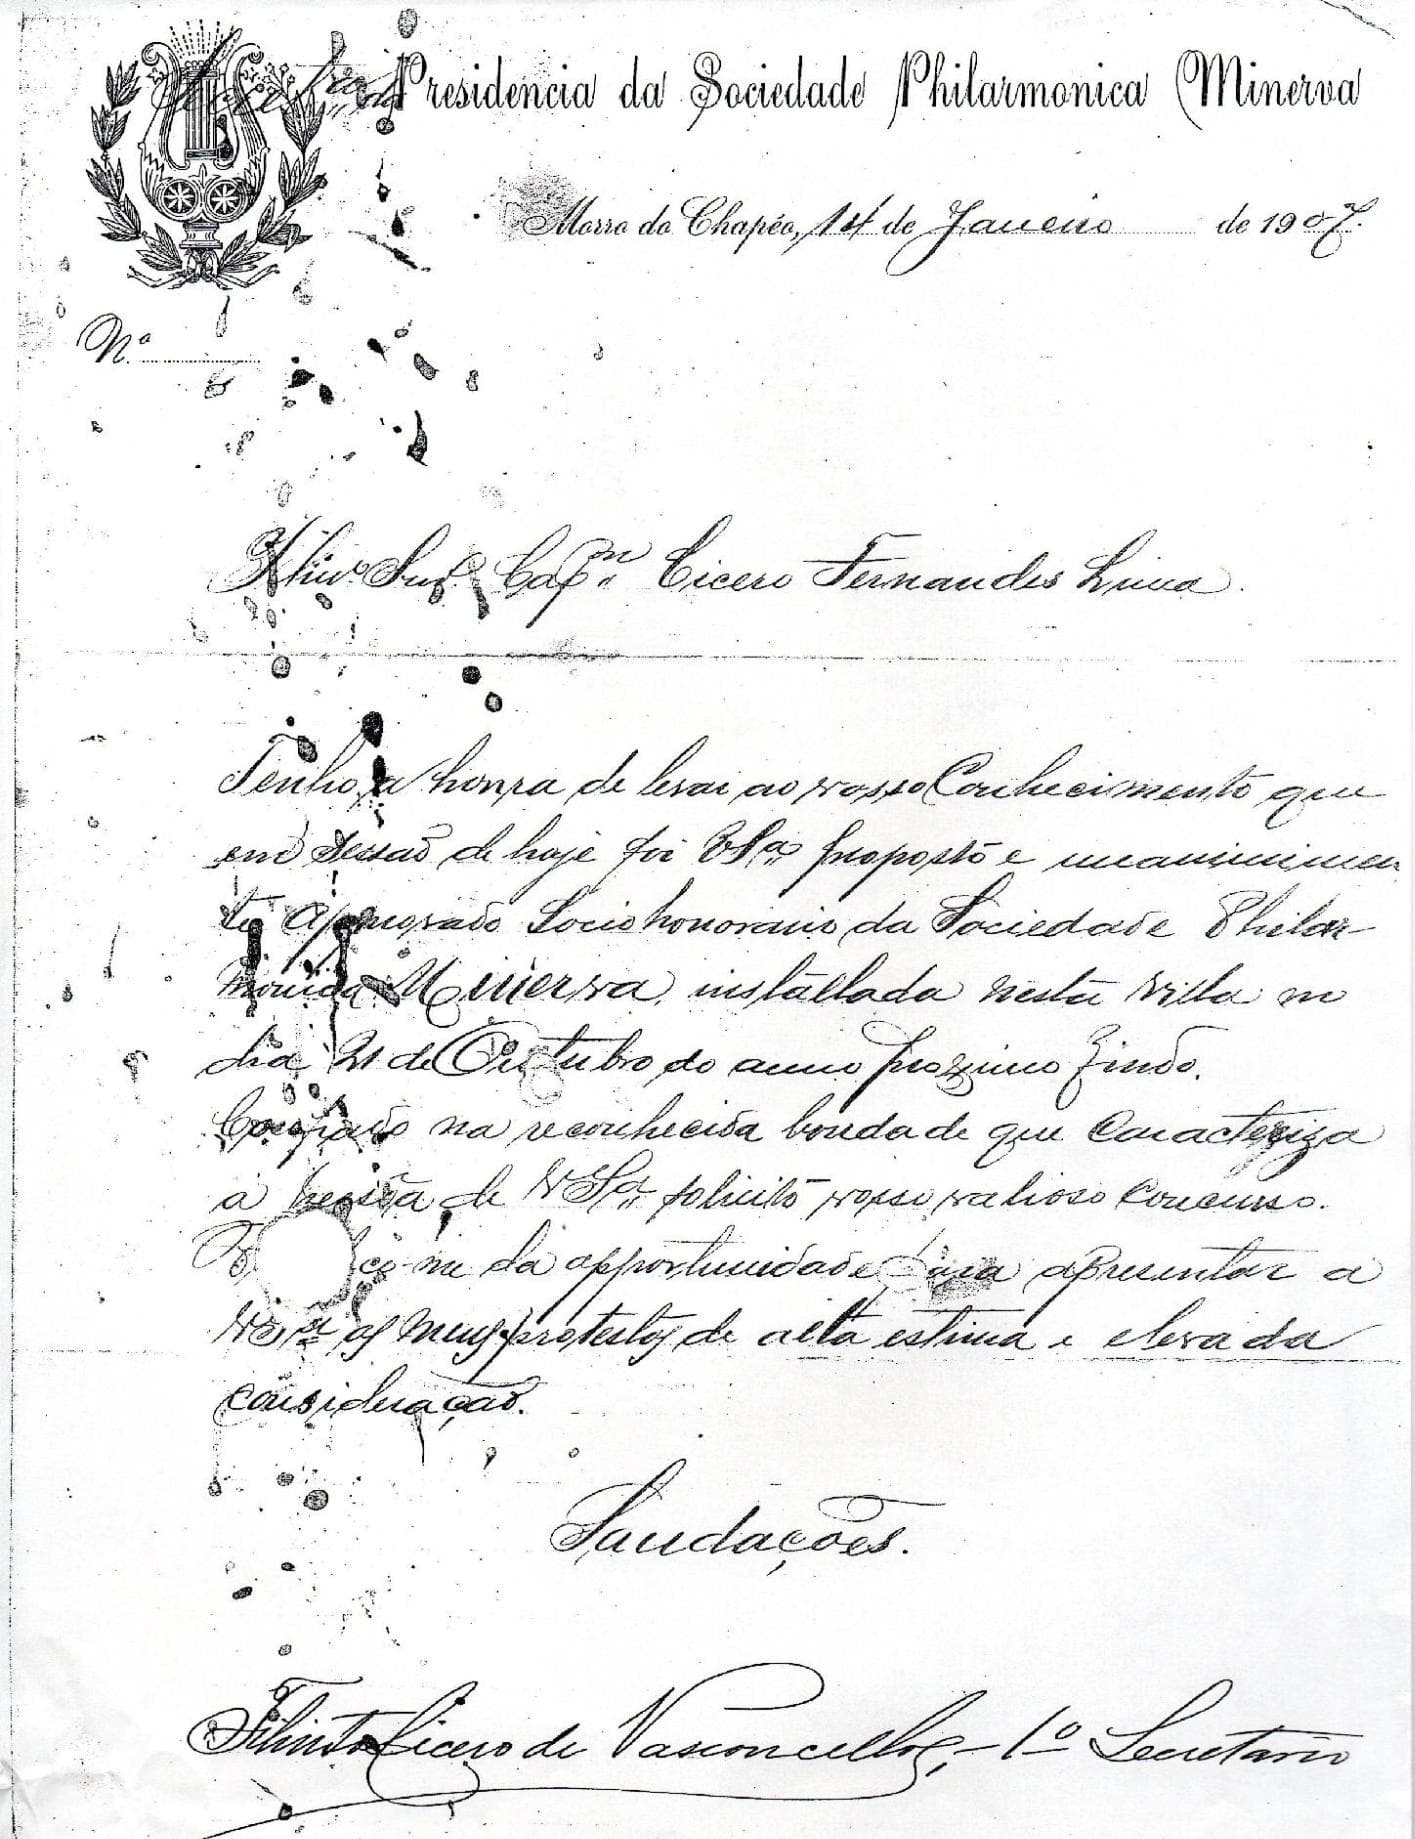 Presidencia da Sociedade Philarmonica Minerva
Morro do Chapéo, 14 de Janeiro de 1907.
N.º
Illmo. Snr. Capn. Cicero Fernandes Lima.
Tenho a honra de levar ao vosso Conhecimento que
em sessão de hoje foi V Sa. proposto e unanimimen
te approvado Socio honorario da Sociedade Philar-
monica Minerva, installada nesta Villa no
dia 21 de Outubro do anno proximo findo.
Confiado na reconhecida bondade que caracteriza
a pessôa de V Sa. solicito vosso valioso concurso.
ço-me da opportunidade para apresentar a
V Sa. os meus protestos de alta estima e elevada
consideração.
Saudações.
Filinto Cicero de Vasconcellos, - 1º Secretario